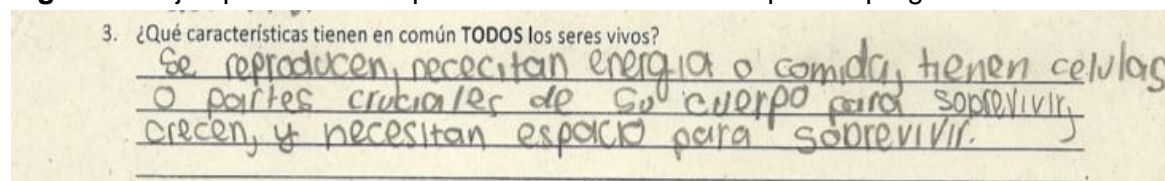 3. ¿Qué características tienen en común TODOS los seres vivos?
Se reproducen, nececitan energia o comida, tienen celulas
o partes cruciales de su cuerpo para sobrevivir,
crecen, y necesitan espacio para sobrevivir.